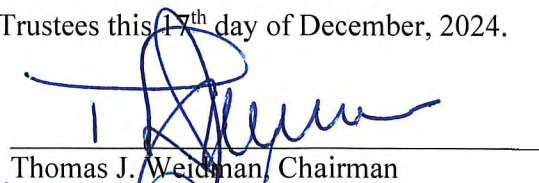 Trustees this 17th day of December, 2024.
Thomas J. Weidman, Chairman